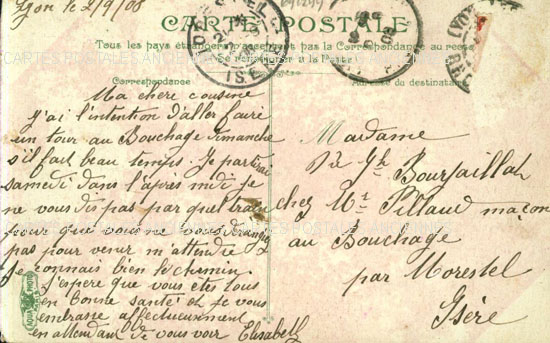 Lyon le 2/9/08
CARTE POSTALE
Tous les pays étrangers n'acceptent pas la Correspondance au recto
Se renseigner à la Poste
Correspondance
Adresse du destinataire
Ma chère cousine
j'ai l'intention d'aller faire
un tour au Bouchage dimanche
s'il fait beau temps. Je partirai
samedi dans l'après midi je
ne vous dis pas par quel train
pour que vous ne vous dérangiez
pas pour venir m'attendre
je connais bien le chemin.
J'espère que vous êtes tous
en bonne santé et je vous
embrasse affectueusement
en attendant de vous voir Elisabeth
Madame
Bourjaillat
chez Mr Pillaud maçon
au Bouchage
par Morestel
Isère
ISERE
LYON
AQUA PHOTO
CARTES POSTALES ANCIENNES